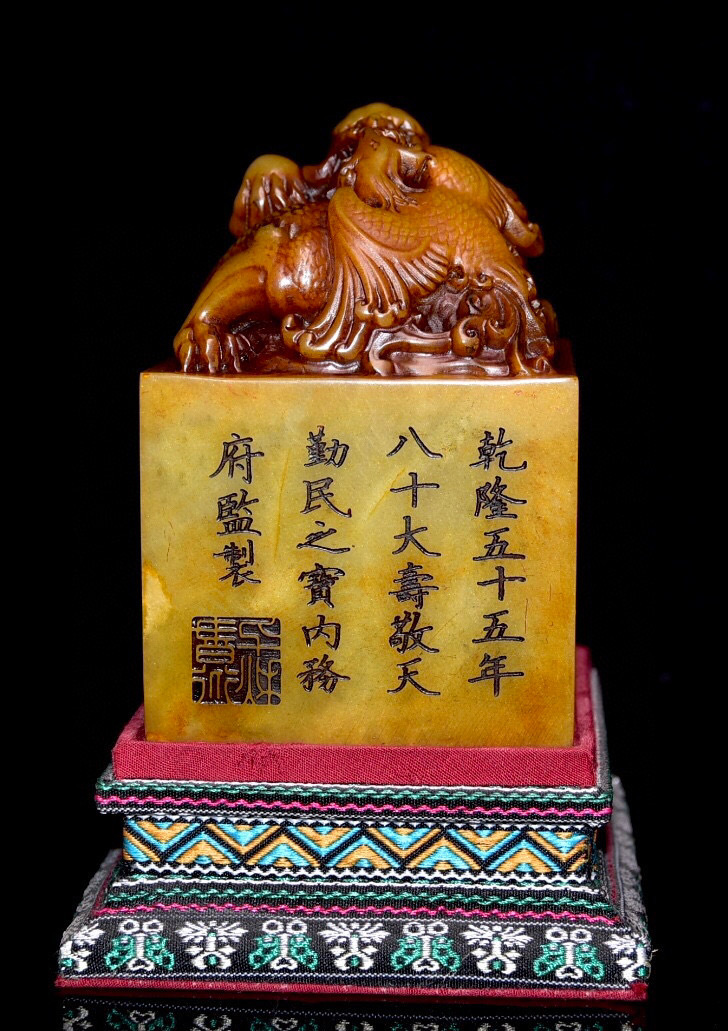 乾隆五十五年
八十大壽敬天
勤民之寶内務
府監製